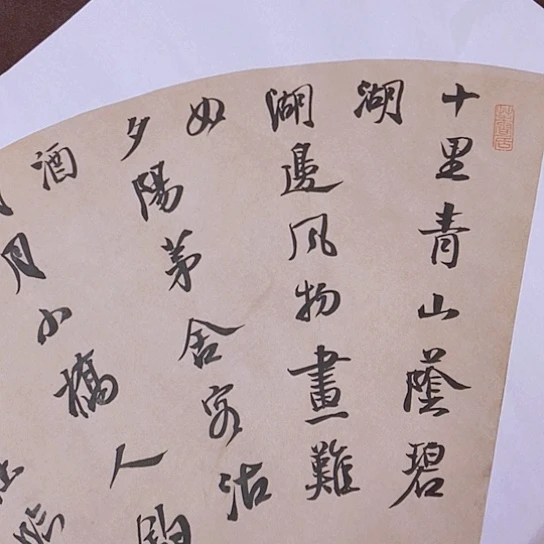 十里青山蔭碧
湖
湖邊風物畫難
如
夕陽茅舍客沽
酒
月小橋人釣